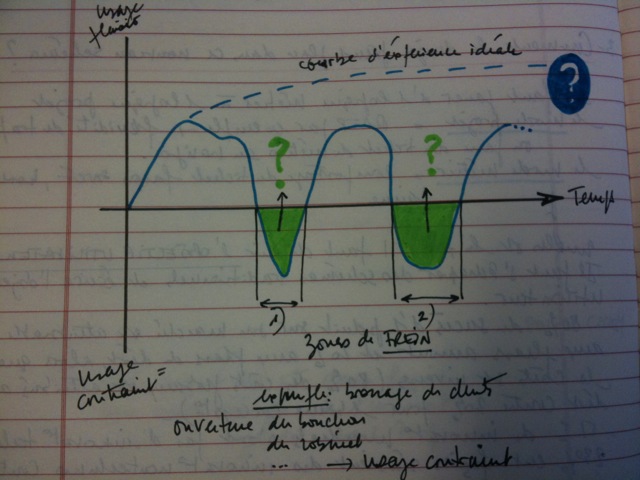 usage
courbe d'expérience idéale
?
?
?
...
Temps
1)
2)
zones de FREIN
usage
contraint
exemple: brossage de dents
ouverture du bouchon
du robinet
... → usage contraint